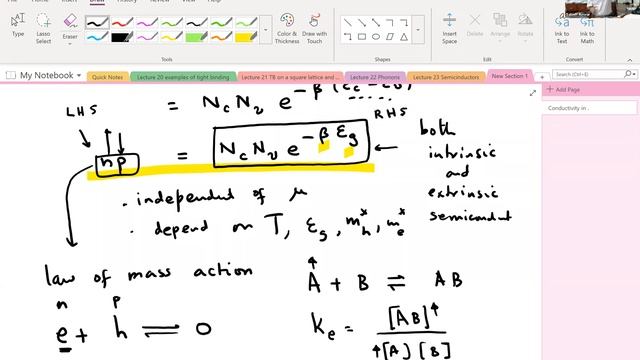 Draw
Type
Lasso Select
Eraser
Color & Thickness
Draw with Touch
Insert Space
Delete
Arrange
Rotate
Ink to Text
Ink to Math
Tools
Shapes
Edit
Convert
My Notebook
Quick Notes
Lecture 20 examples of tight binding
Lecture 21 TB on a square lattice and ...
Lecture 22 Phonons
Lecture 23 Semiconductors
New Section 1
Search (Ctrl+E)
Add Page
Conductivity in .
= NcNv e^-β(εc-εv)
LHS
RHS
np = NcNv e^-βεg
both intrinsic and extrinsic semiconduct
. independent of μ
. depend on T, εg, m*h, m*e
law of mass action
n p
e + h ⇌ 0
A + B ⇌ AB
Ke = [AB]↑ / ↑[A][B]